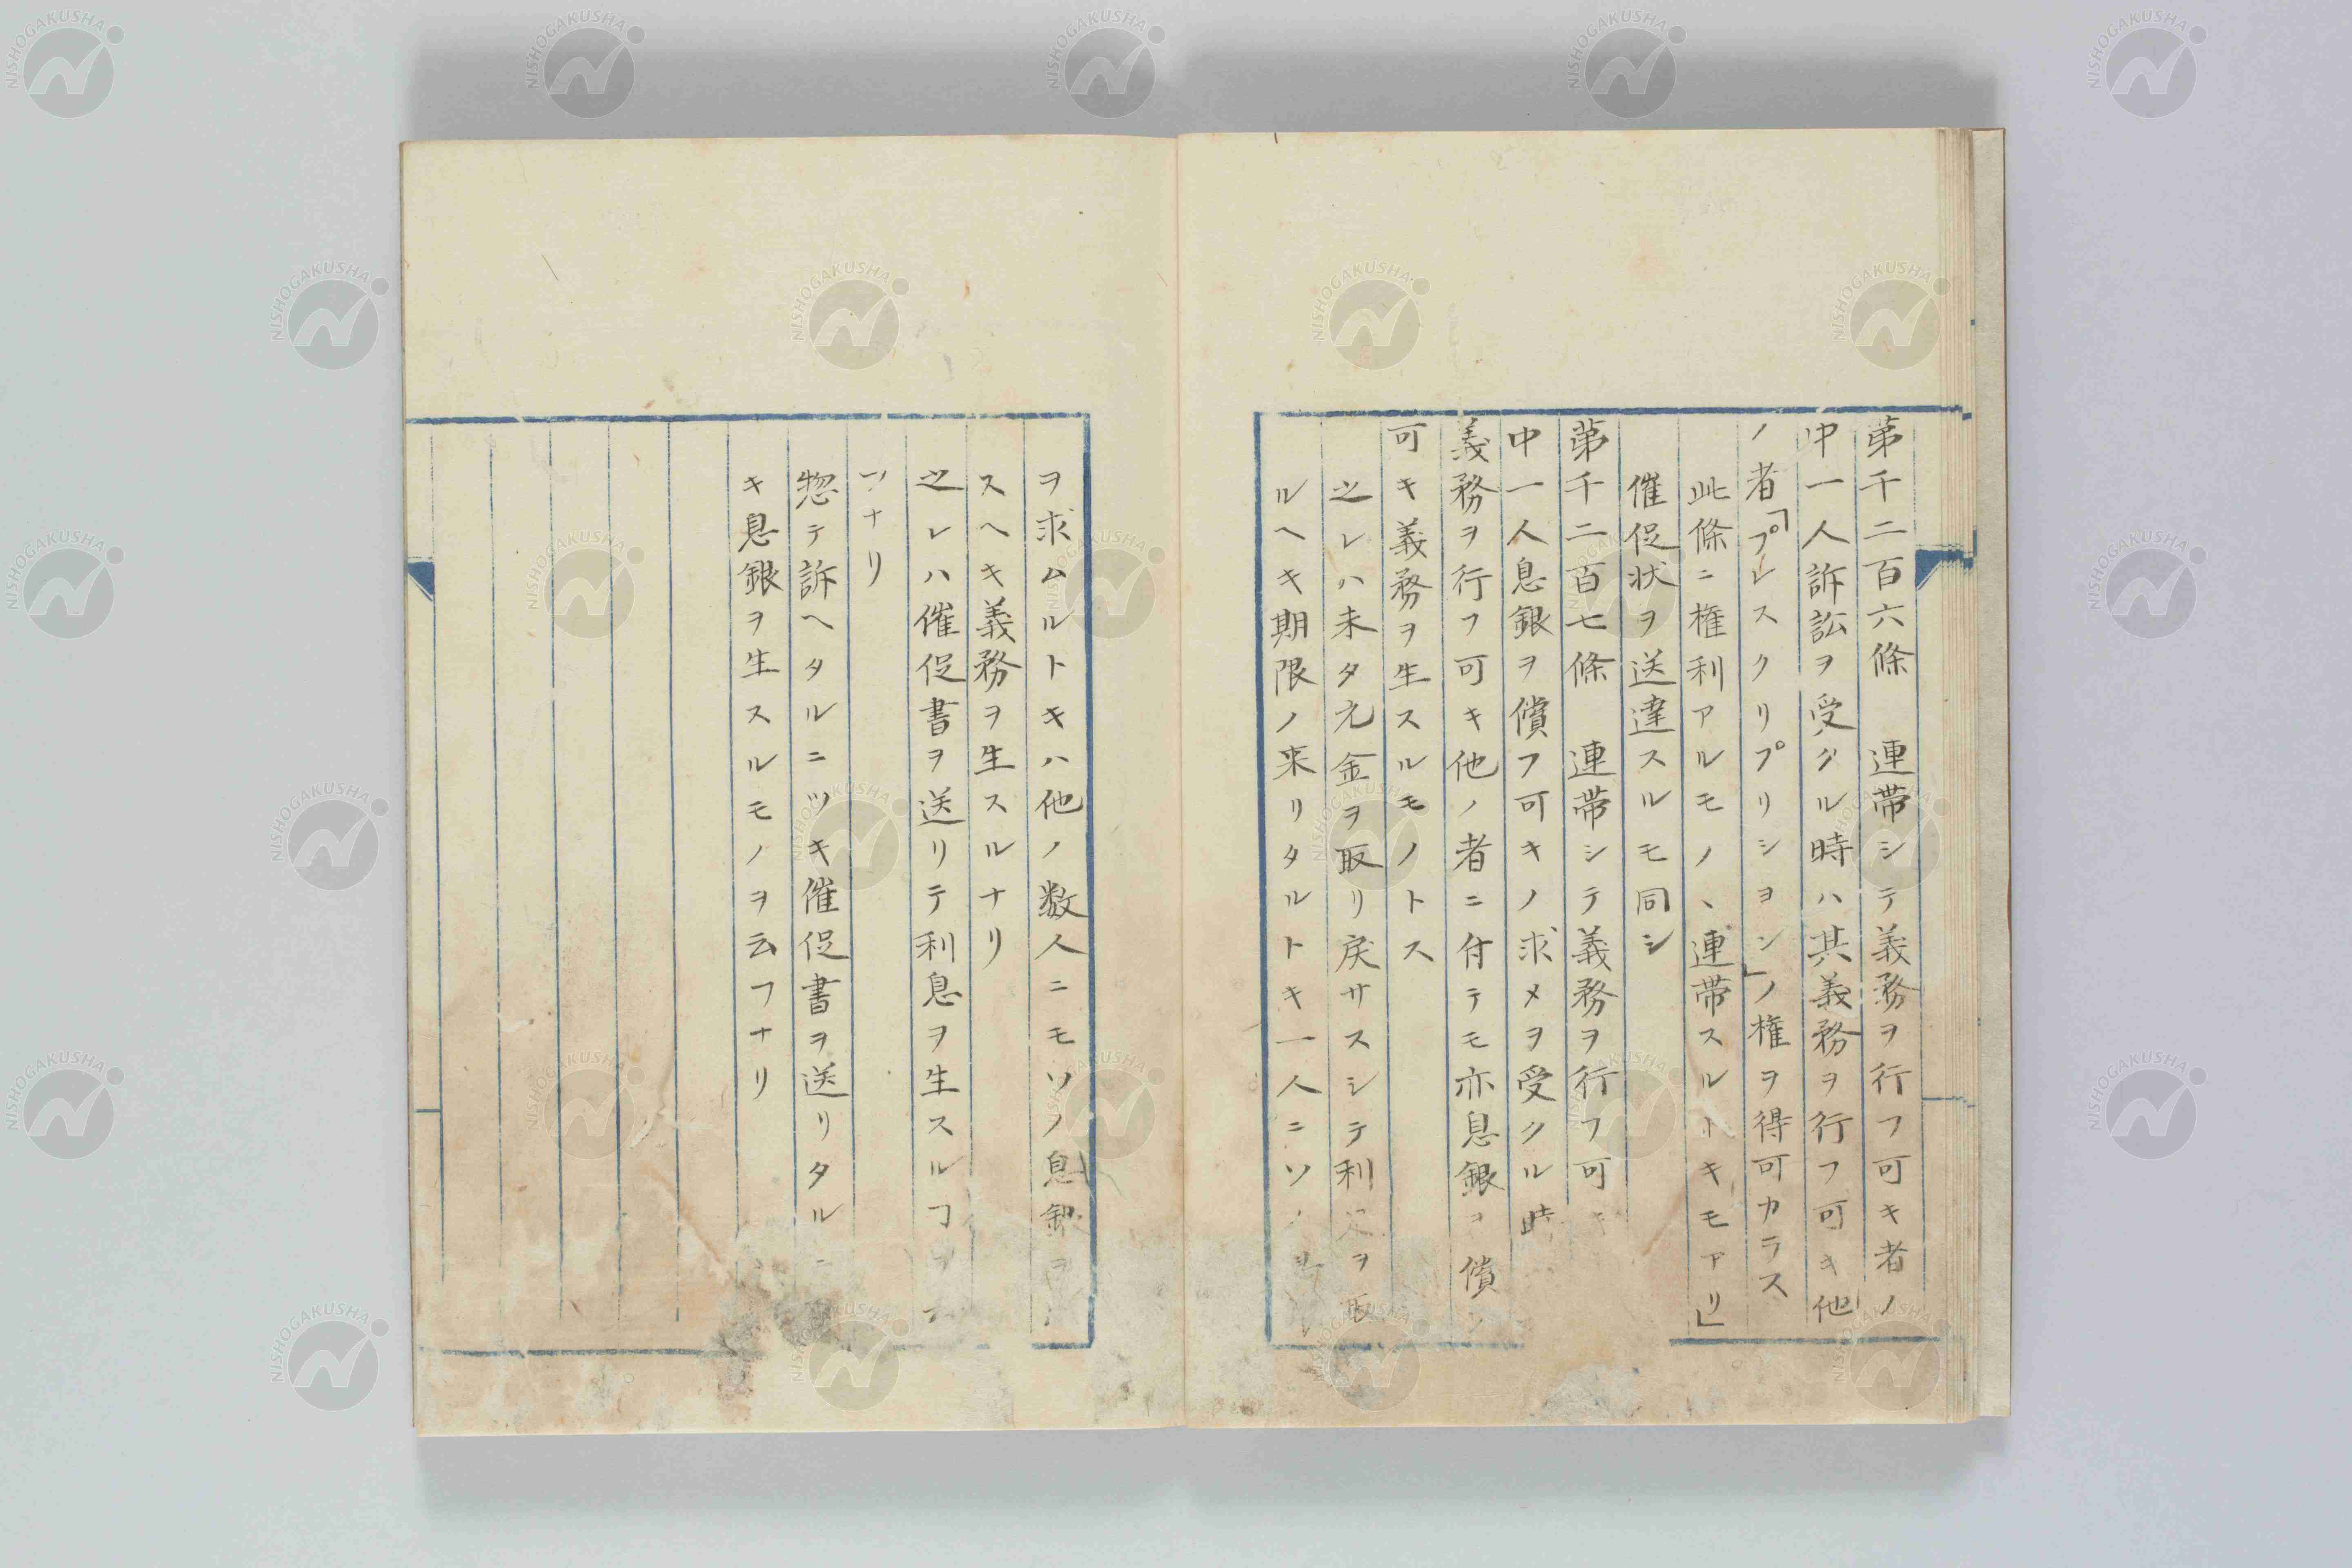 第千二百六條　連帶シテ義務ヲ行フ可キ者ノ
中一人訴訟ヲ受クル時ハ其義務ヲ行フ可キ他
ノ者「プレスクリプリシヨン」ノ権ヲ得可カラス
此條ニ権利アルモノヽ連帶スルトキモアリ」
催促状ヲ送達スルモ同シ
第千二百七條　連帶シテ義務ヲ行フ可キ
中一人息銀ヲ償フ可キノ求メヲ受クル時
義務ヲ行フ可キ他ノ者ニ付テモ亦息銀ヲ償
可キ義務ヲ生スルモノトス
之レハ未タ元金ヲ取リ戻サスシテ利足ヲ取
ルヘキ期限ノ来リタルトキ一人ニソノ
ヲ求ムルトキハ他ノ数人ニモソノ息銀ヲ
スヘキ義務ヲ生スルナリ
之レハ催促書ヲ送リテ利息ヲ生スルヿヲ云
フナリ
惣テ訴ヘタルニツキ催促書ヲ送リタルニ
キ息銀ヲ生スルモノヲ云フナリ
NISHOGAKUSHA